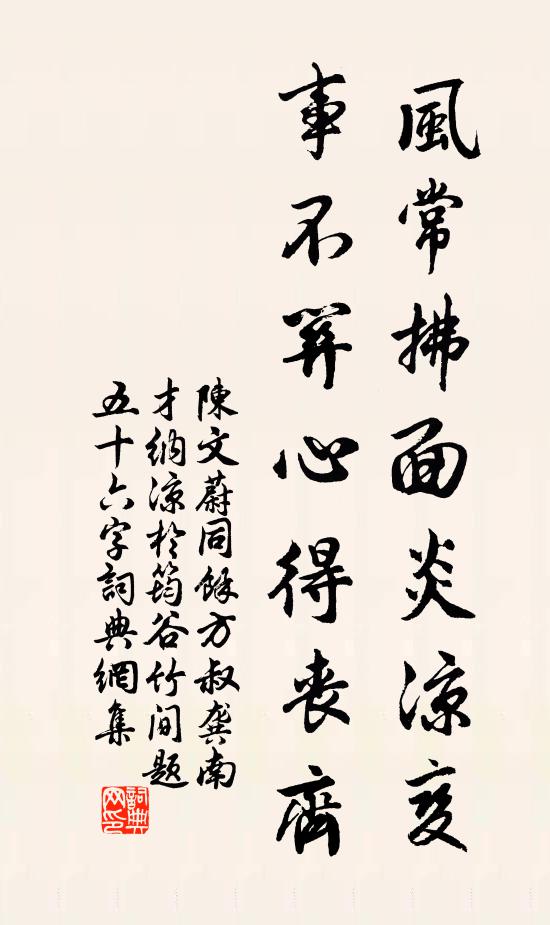 風常拂面炎涼變
事不關心得喪齊
陳文蔚同餘方叔龔南
才納涼於筠谷竹間題
五十六字詞典網集
詞典
网印